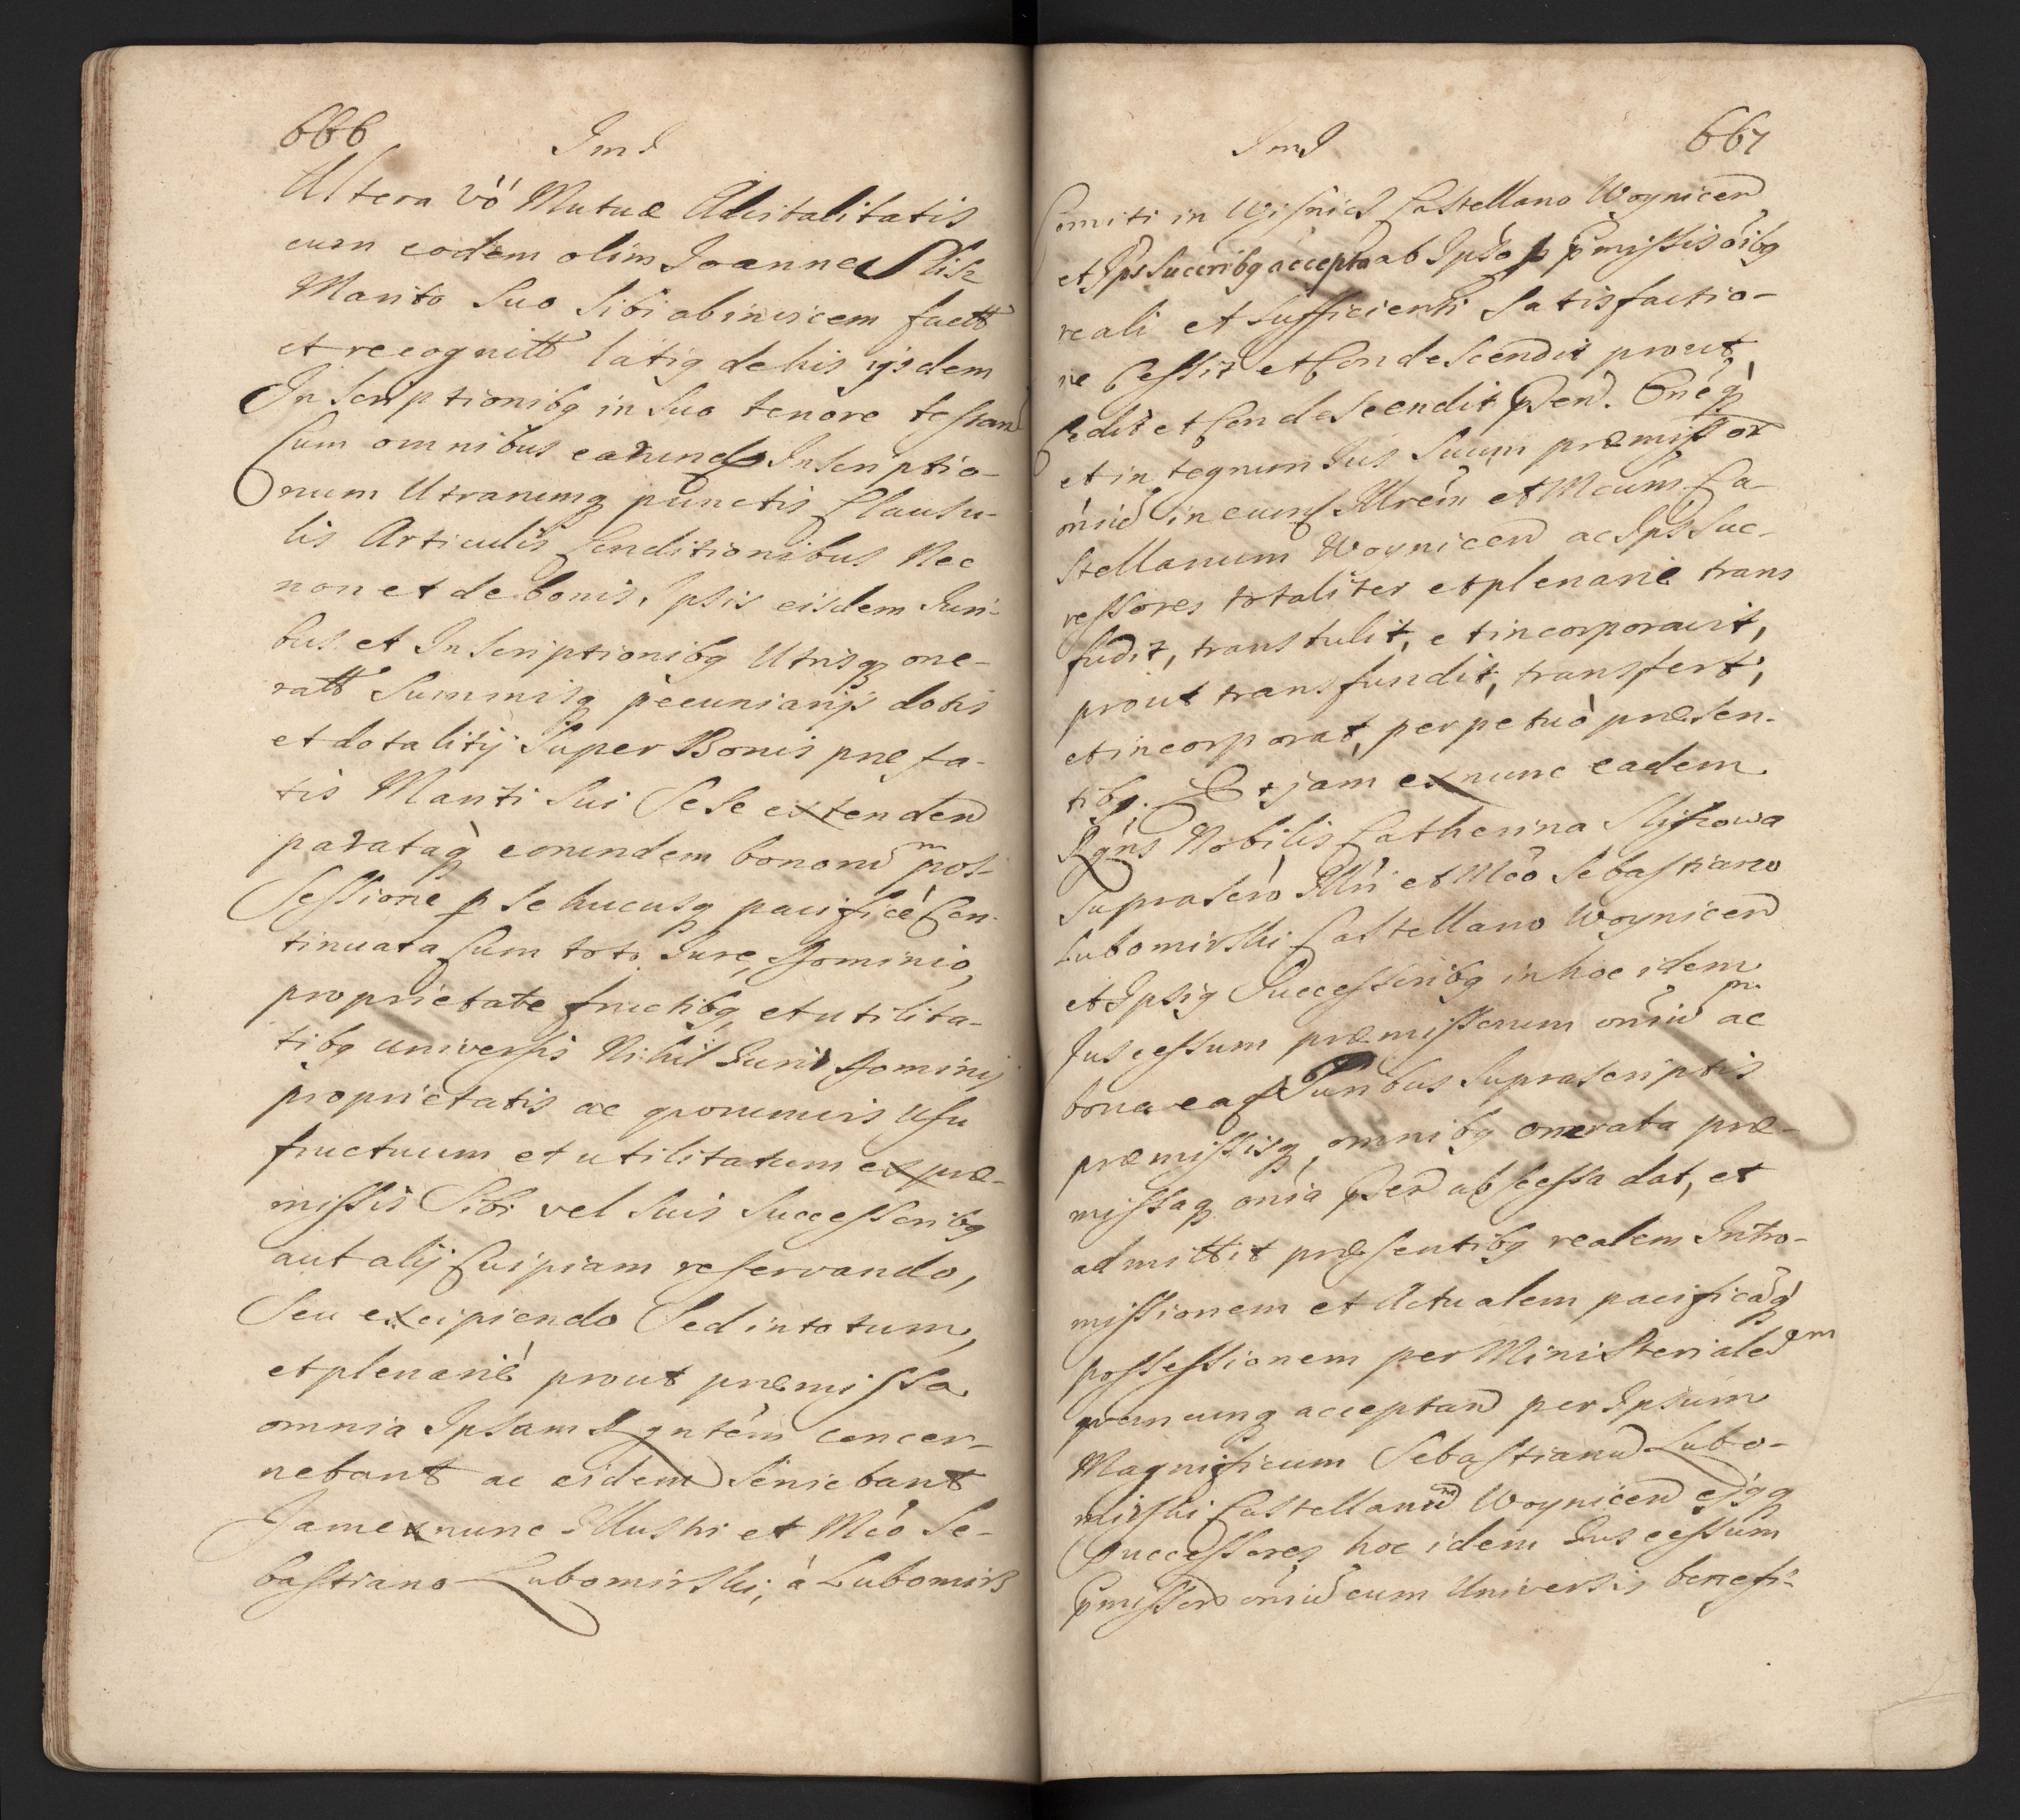 666
Altera vó Mutuæ Advitalitatis
cum eodem olim Joanne Slisz
Marito Suo Sibi abinvicem factt
et recognitt latiq de his ijsdem
Inscriptionibq in Suo tenore testan
Cum omnibus earund Inscriptio-
num Utrarumq punctis Clausu-
lis Articulis Conditionibus Nec
non et de bonis Ipsis eisdem Juri-
bus et Inscriptionibq Utrisq one-
ratt Summisq pecuniarijs dotis
et dotalitij Super Bonis præfa-
tis Mariti Sui Sese extenden
parataq eorundem bonorũ pos-
sessione p se hucusq pacificè Con-
tinuata Cum toto Jure, Dominio,
proprietate fructibq, et utilita-
tibq universis Nihil Juris Dominij
proprietatis ac quorumvis Usu
fructuum et utilitatum ex præ-
missis Sibi vel Suis Successoribq
aut alij Cuipiam reservando,
Seu excipiendo Sed in totum,
et plenarié prout præmissa
omnia Ipsam Rgntém concer-
nebant ac eidem Serviebant
Jam ex nunc Illustri et Mćo Se-
bastiano Lubomirski, à Lubomirz
667
Comiti in Wisnicz Castellano Woynicen
et Ips Succribq accepta ab Ipso p pmissis oibq
reali et Sufficienti Satisfactio-
ne Cessit et Condescendit prout
Cedit et Condescendit Psen.
et in tegrum Jus Suum præmissor
omniũ in eund Illrem et Mcum Ca-
stellanum Woynicen ac Ips Suc-
cessores totaliter et plenarie trans
fudit, transtulit, et incorporavit,
prout transfundit, transfert,
et incorporat, perpetuò præsen-
tibq. Et jam ex nunc eadem
Rgns Nobilis Catherina Sliszowa
Suprascro Illri et Mćo Sebastiano
Lubomirski Castellano Woynicen
et Ipsiq Successoribq in hoc idem
Jus cessum præmissorum omniũ ac
bona ea Juribus Suprascriptis
præmissisq omnibq onerata præ-
missaq omia Psen ab cessa dat, et
admittit præsentibq realem Intro-
missionem et Actualem pacificaq
possessionem per Ministerialem
quemcunq acceptan per Ipsum
Magnificum Sebastianũ Lubo-
mirski Castellanũ Woynicen ejqq
Successores hoc idem Jus cessum
pmissor omniũ cum Universis benefi-